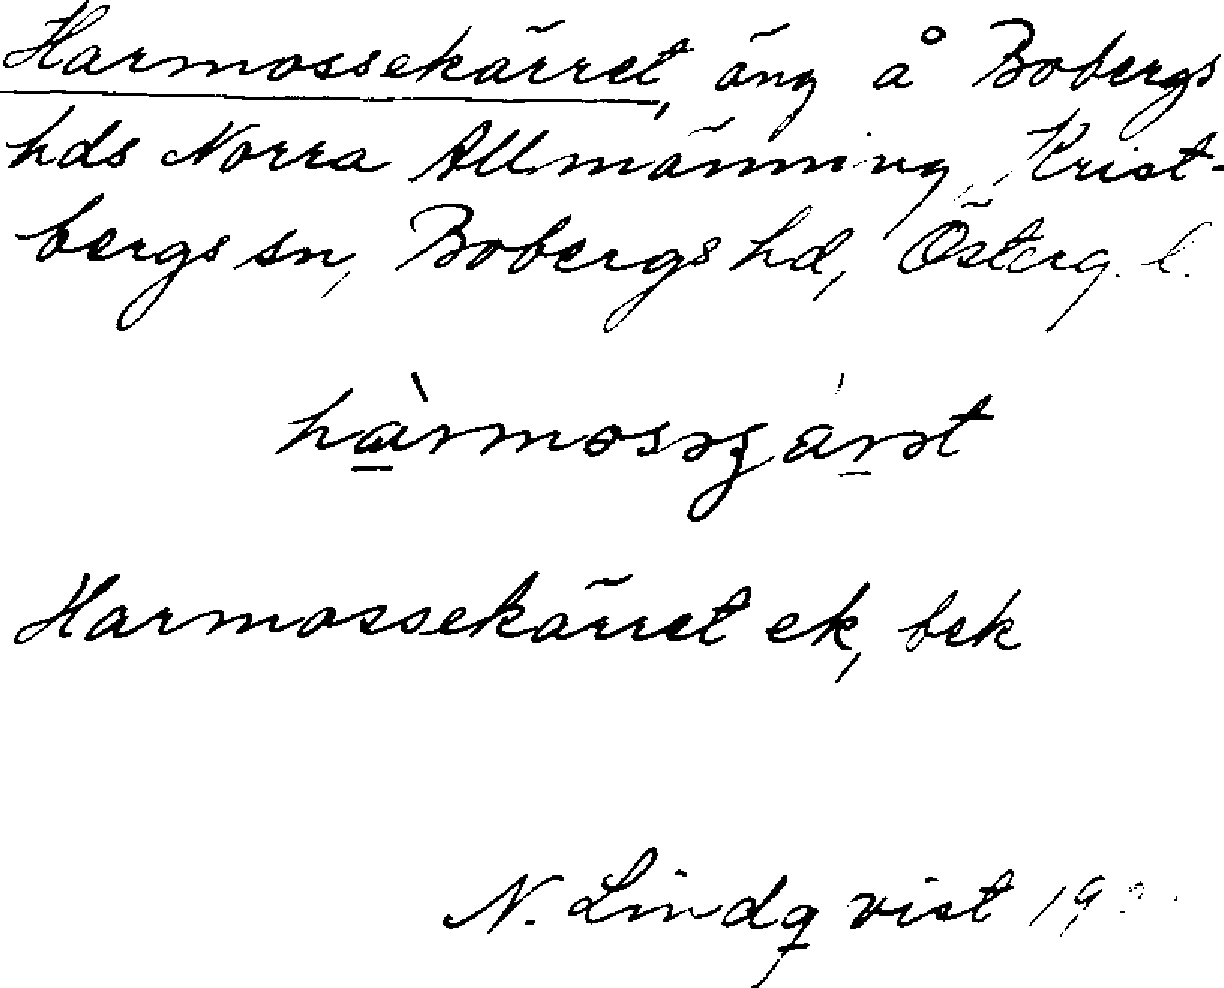 Harmossekärret, äng å Bobergs
hds Norra Allmänning, Krist-
bergs sn, Bobergs hd, Österg. l.
Harmossekärret ek, bek
N. Lindqvist